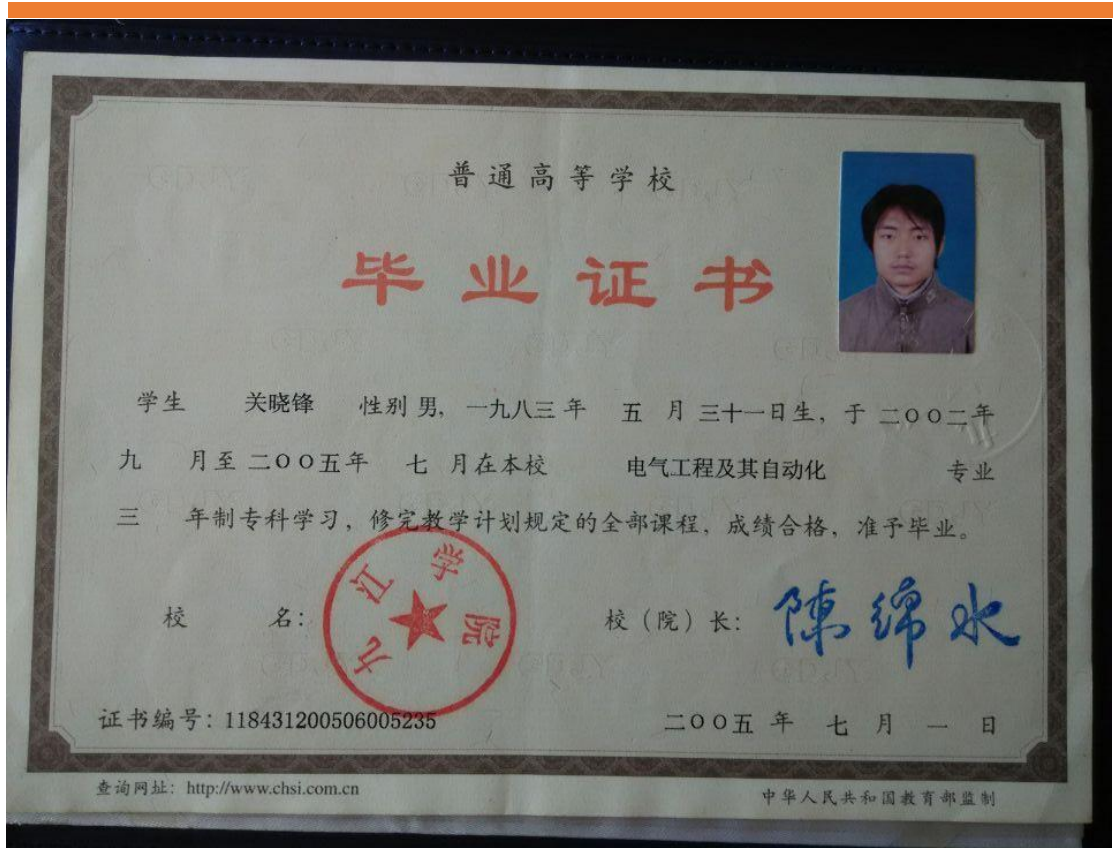 普通高等学校
毕业证书
学生 关晓锋 性别 男, 一九八三 年 五 月 三十一日生, 于 二〇〇二年
九 月至 二〇〇五年 七 月在本校 电气工程及其自动化 专业
三 年制专科学习, 修完教学计划规定的全部课程, 成绩合格, 准予毕业。
九江学院
校 名: 校(院)长: 陳绵水
证书编号: 118431200506005235 二〇〇五 年 七 月 一 日
查询网址: http://www.chsi.com.cn 中华人民共和国教育部监制